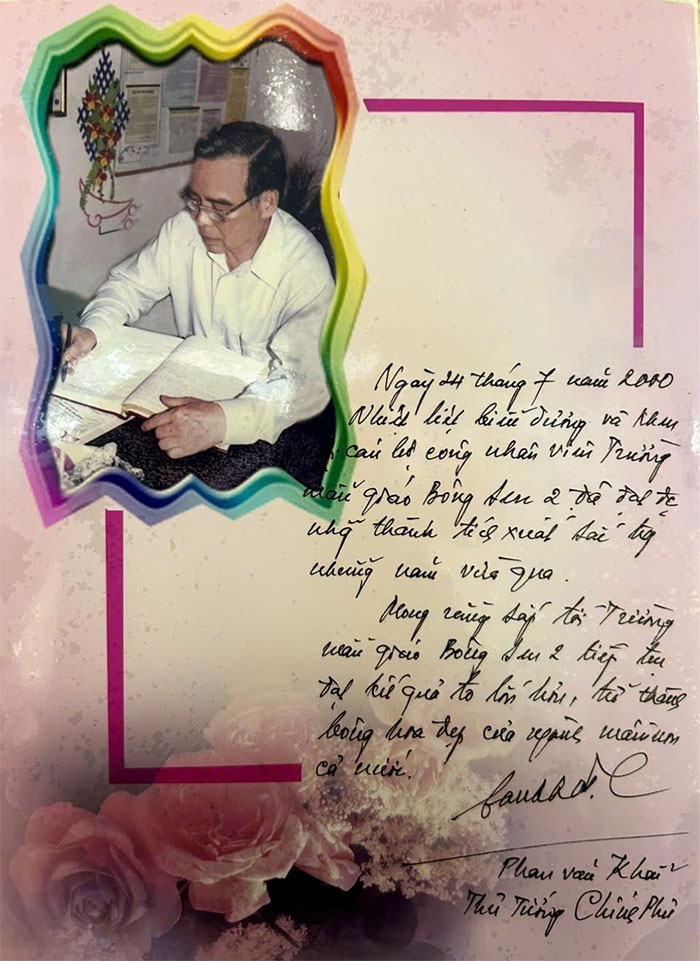 Ngày 24 tháng 7 năm 2000
Nhiệt liệt biểu dương và khen
cán bộ công nhân viên Trường
mẫu giáo Bông Sen 2 đã đạt đc
những thành tích xuất sắc trg
những năm vừa qua.
Mong rằng sắp tới Trường
mẫu giáo Bông Sen 2 tiếp tục
đạt kết quả to lớn hơn, trở thành
bông hoa đẹp của ngành mầm non
cả nước.
Phan Văn Khải
Thủ Tướng Chính Phủ